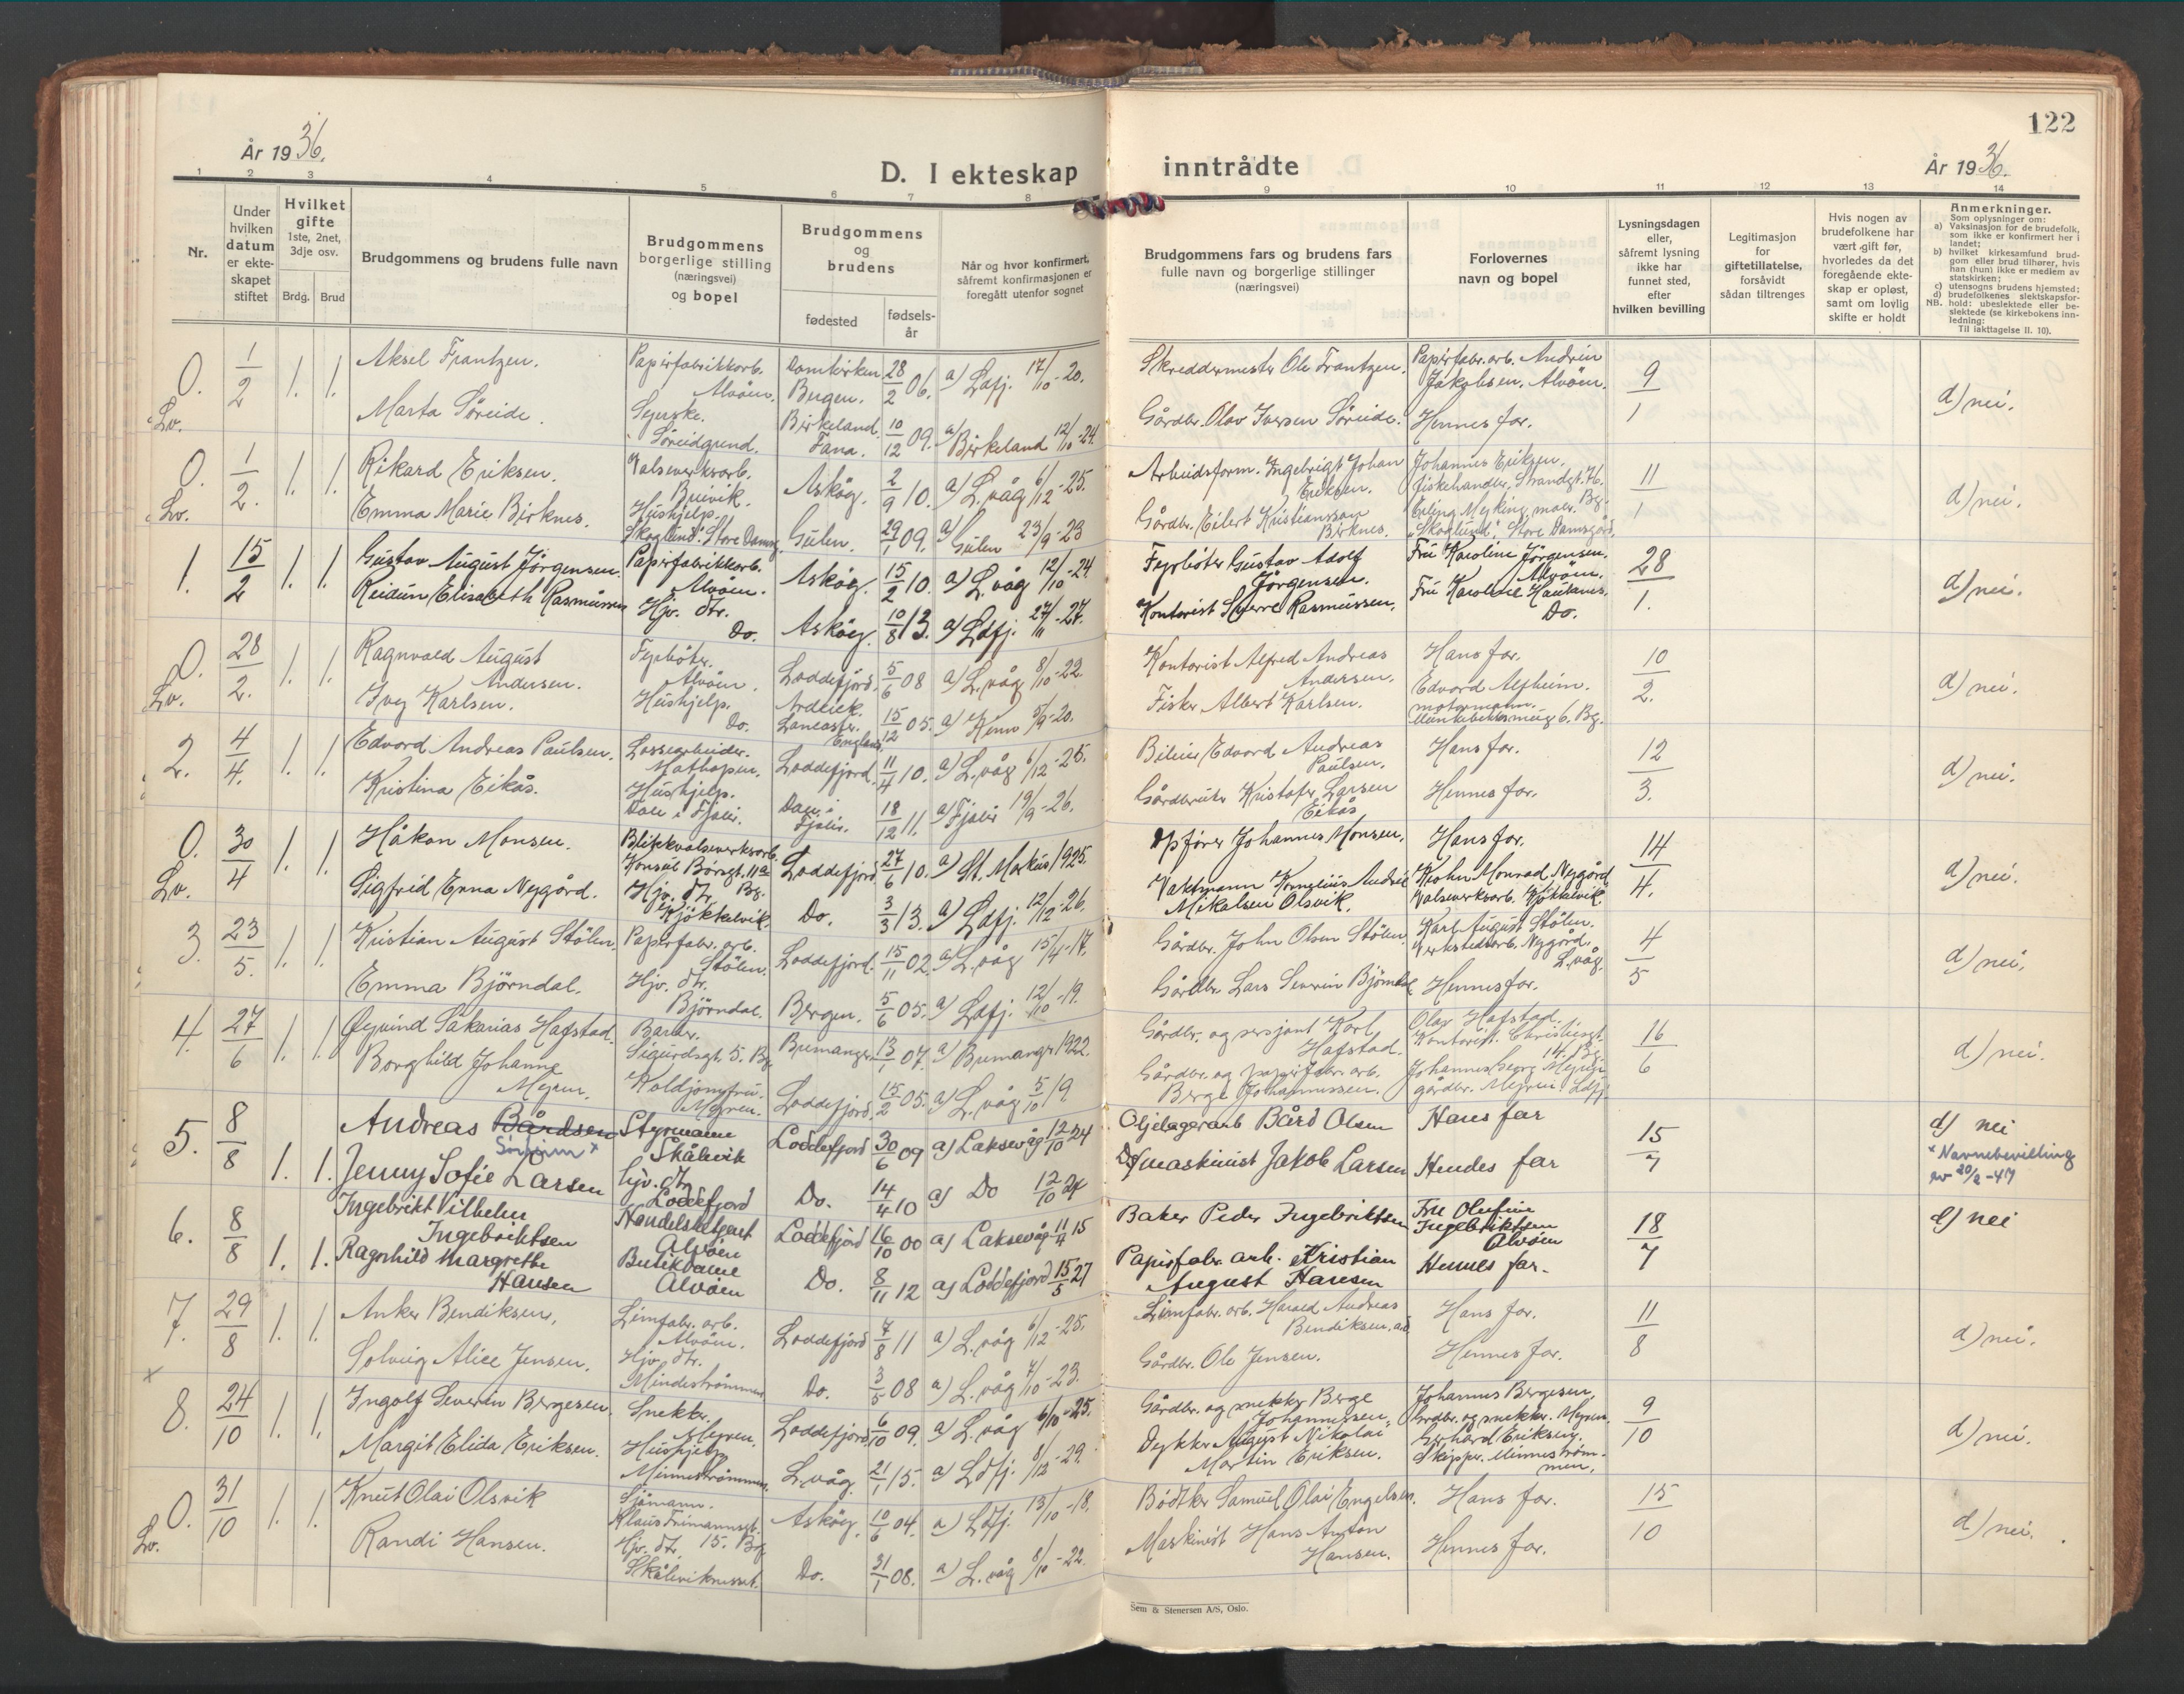 År 1936.
D. I ekteskap
1 2 3 4 5 6 7 8
Nr.
Under hvilken datum er ekteskapet stiftet
Hvilket gifte 1ste, 2net, 3dje osv.
Brdg. Brud
Brudgommens og brudens fulle navn
Brudgommens borgerlige stilling (næringsvei) og bopel
Brudgommens og brudens
fødested
fødselsår
Når og hvor konfirmert, såfremt konfirmasjonen er foregått utenfor sognet
0. Lv. 1/2 1. 1.
Aksel Frantzen. Papirfabrikkarb. Alvöen. Domkirken Bergen. 28/2 06. a) Ldfj. 17/10-20.
Marta Söreide. Syerske. Söreidgrend. Birkeland Fana. 10/12 09. a) Birkeland 12/10-24.
0. Lv. 1/2. 1. 1.
Rikard Eriksen. Valseverksarb. Breivik. Asköy. 2/9 10. a) L.våg 6/12-25.
Emma Marie Birknes. Hushjelp. Skoglund. Store Damsg. Gulen. 29/1 09. a) Gulen 23/9-23
1. 15/2 1. 1.
Gustav August Jörgensen. Papirfabrikkarb. Alvöen. Asköy. 15/2 10. a) L.våg 12/10-24
Reidun Elisabeth Rasmussen Hjv. dtr. Do. Asköy. 10/8 13. a) Ldfj. 27/11-27.
0. Lv. 28/2. 1. 1.
Ragnvald August Andersen. Fyrböter. Alvöen. Loddefjord. 5/6 08 a) L.våg 8/10-22.
Ivy Karlsen. Hushjelp. Do. Lancaster. England. 15/12 05. a) Kinn 5/9-20.
2. 4/4. 1. 1.
Edvard Andreas Paulsen. Lossearbeider. Mathopen. Loddefjord. 11/4 10. a) L.våg 6/12-25.
Kristina Eikås. Hushjelp. Dale i Fjaler. Dale i Fjaler. 18/12 11. a) Fjaler 19/9-26.
0. Lv. 30/4 1. 1.
Håkon Monsen. Blikkvalseverksarb. Konsul Börsgt. 11a Bg. Loddefjord 27/6 10. a) St. Markus 1925.
Sigfrid Enna Nygård. Hjv. dtr. Kjökkelvik. Do. 3/3 13. a) Ldfj. 12/12-26.
3. 23/5. 1. 1.
Kristian August Stölen. Papirfabr. arb. Stölen. Loddefjord. 15/11 02. a) L.våg 15/4-17.
Emma Björndal. Hjv. dtr. Björndal. Bergen. 5/6 05. a) Ldfj. 12/10-19.
4. 27/6 1. 1.
Øyvind Sakarias Hafstad. Barber. Sigurdsgt. 5. Bg. Bremanger 13/1 07. a) Bremanger 1922.
Borghild Johanne Myren. Koldjomfru. Myren. Loddefjord. 15/2 05. a) L.våg 5/10 19.
5. 8/8 1. 1.
Andreas Bårdsen Styrmann Skålevik Loddefjord 30/6 09 a) Laksevåg 12/10 24
Jenny Sofie Larsen hjv. dtr. Loddefjord Do. 14/4 10 a) Do 12/10 24
6. 8/8 1. 1.
Ingebrikt Vilhelm Ingebriktsen Handelsbetjent Alvöen Loddefjord 16/10 00 a) Laksevåg 11/4 15
Ragnhild Margrethe Hansen Butikdame Alvöen Do. 8/11 12 a) Loddefjord 15/5 27
7. 29/8 1. 1.
Anker Bendiksen, Limfabr. arb. Alvöen. Loddefjord 7/8 11 a) L.våg 6/12-25.
Solveig Alice Jensen. Hjv. dtr. Mindeströmmen Do. 3/5 08 a) L.våg 7/10-23.
x
8. 24/10 1. 1.
Ingolf Severin Bergesen. Snekker. Myren. Loddefjord. 6/10 09. a) L.våg 6/10-25.
Margit Elida Eriksen. Hushjelp. Minneströmmen. L.våg. 21/1 15. a) Ldfj. 8/12-29.
0. Lv. 31/10 1. 1.
Knut Olai Olsvik Sjömann. Klaus Frimannsgt. 15. Bg. Asköy. 10/6 04. a) Ldfj. 13/10-18.
Randi Hansen. Hjv. dtr. Skålevikneset. Do. 31/1 08. a) L.våg 8/10-22.
122
inntrådte
År 1936.
9 10 11 12 13 14
Brudgommens fars og brudens fars fulle navn og borgerlige stillinger (næringsvei)
Forlovernes navn og bopel
Lysningsdagen eller, såfremt lysning ikke har funnet sted, efter hvilken bevilling
Legitimasjon for giftetillatelse, forsåvidt sådan tiltrenges
Hvis nogen av brudefolkene har vært gift før, hvorledes da det foregående ekteskap er opløst, samt om lovlig skifte er holdt
Anmerkninger.
Som oplysninger om:
a) Vaksinasjon for de brudefolk, som ikke er konfirmert her i landet;
b) hvilket kirkesamfund brudgom eller brud tilhører, hvis han (hun) ikke er medlem av statskirken;
c) utensogns brudens hjemsted;
d) brudefolkenes slektskapsforhold: ubeslektede eller beslektede (se kirkebokens innledning:
NB. Til iakttagelse II. 10).
Skreddermester Ole Frantzen. Papirfabr. arb. Andrein Jakobsen. Alvöen. 9/1 d) nei.
Gårdbr. Olav Iversen Söreide. Hennes far.
Arbeidsform. Ingebrigt Johan Eriksen. Johannes Eriksen. fiskehandler. Strandgt. 76. Bg. 11/1 d) nei.
Gårdbr. Eilert Kristiansson Birknes. Erling Myking, maler. "Skoglund". Store Damsgård.
Fyrböter Gustav Adolf Jörgensen. Fru Karoline Jörgensen. Alvöen. 28/1. d) nei.
Kontorist Sverre Rasmussen. Fru Karoline Haukanes. Do.
Kontorist Alfred Andreas Andersen. Hans far. 10/2. d) nei.
Fisker Albert Karlsen. Edvard Alfheim. motormann. 6. Bg.
Bileier Edvard Andreas Paulsen. Hans far. 12/3. d) nei.
Gårdbruker Kristofer Larsen Eikås Hennes far.
Dpförer Johannes Monsen. Hans far. 14/4. d) nei.
Vaktmann Kornelius Andreas Mikalsen Olsvik. Monrad Nygård Valseverksarb. Kjökkelvik.
Gårdbr. John Olsen Stölen. Karl August Stölen. Verkstedsarb. Nygård. L.våg. 4/5 d) nei.
Gårdbr. Lars Severin Björndal Hennes far.
Gårdbr. og sersjant Karl Hafstad. Olav Hafstad. Kontorist. Christiesgt. 14. Bg. 16/6 d) nei.
Gårdbr. og papirfabr. arb. Berge Johannessen. Johannes Myren gårdbr. Myren. Ldfj.
Oljelagerarb Bård Olsen Hans far 15/7 d) nei
Dsmaskinist Jakob Larsen Hendes far * Navnebevilling av 20/2-47
Baker Peder Ingebriktsen Fru Olufine Ingebriktsen Alvöen 18/7 d) nei
Papirfabr. arb. Kristian August Hansen Hennes far.
Limfabr. arb. Harald Andreas Bendiksen. Hans far. 11/8 d) nei.
Gårdbr. Ole Jensen. Hennes far.
Gårdbr. og snekker Berge Johannessen. Johannes Bergesen, Grdbr. og snekker. Myren. 9/10 d) nei.
Dykker August Nikolai Martin Eriksen. Gerhard Eriksen. Skipper. Minneströmmen.
Bödtker Samuel Olai Engelsen. Hans far. 15/10 d) nei.
Maskinist Hans Anton Hansen. Hennes far.
Sem & Stenersen A/S, Oslo.